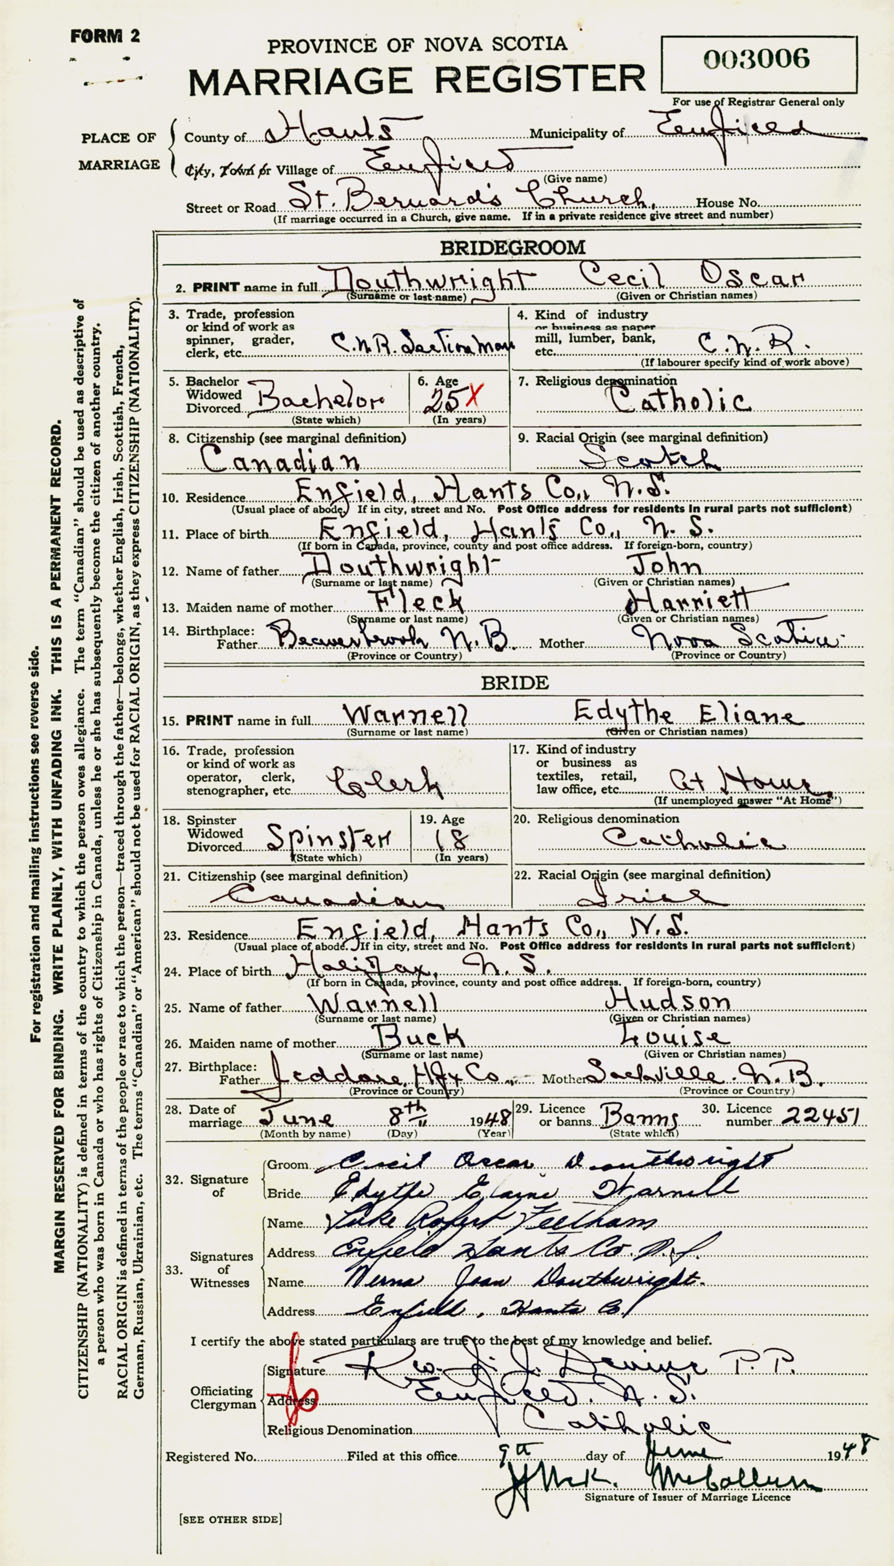 FORM 2
PROVINCE OF NOVA SCOTIA
MARRIAGE REGISTER
003006
For use of Registrar General only
PLACE OF MARRIAGE
County of Hants Municipality of Enfield
City, Town or Village of Enfield
(Give name)
Street or Road St. Bernard's Church, House No.
(If marriage occurred in a Church, give name. If in a private residence give street and number)
BRIDEGROOM
2. PRINT name in full Douthwright Cecil Oscar
(Surname or last name) (Given or Christian names)
3. Trade, profession or kind of work as spinner, grader, clerk, etc. C.N.R. Section Man
4. Kind of industry or business as paper mill, lumber, bank, etc. C.N.R.
(If labourer specify kind of work above)
5. Bachelor Widowed Divorced Bachelor
(State which)
6. Age 25 X
(In years)
7. Religious denomination
Catholic
8. Citizenship (see marginal definition)
Canadian
9. Racial Origin (see marginal definition)
Scotch
10. Residence Enfield, Hants Co., N.S.
(Usual place of abode. If in city, street and No. Post Office address for residents in rural parts not sufficient)
11. Place of birth Enfield, Hants Co., N.S.
(If born in Canada, province, county and post office address. If foreign-born, country)
12. Name of father Douthwright John
(Surname or last name) (Given or Christian names)
13. Maiden name of mother Fleck Harriett
(Surname or last name) (Given or Christian names)
14. Birthplace: Father Beaverbrook N.B. Mother Nova Scotia
(Province or Country) (Province or Country)
BRIDE
15. PRINT name in full Warnell Edythe Eliane
(Surname or last name) (Given or Christian names)
16. Trade, profession or kind of work as operator, clerk, stenographer, etc. Clerk
17. Kind of industry or business as textiles, retail, law office, etc. At Home
(If unemployed answer "At Home")
18. Spinster Widowed Divorced Spinster
(State which)
19. Age 18
(In years)
20. Religious denomination
Catholic
21. Citizenship (see marginal definition)
Canadian
22. Racial Origin (see marginal definition)
Irish
23. Residence Enfield, Hants Co., N.S.
(Usual place of abode. If in city, street and No. Post Office address for residents in rural parts not sufficient)
24. Place of birth Halifax, N.S.
(If born in Canada, province, county and post office address. If foreign-born, country)
25. Name of father Warnell Hudson
(Surname or last name) (Given or Christian names)
26. Maiden name of mother Buck Louise
(Surname or last name) (Given or Christian names)
27. Birthplace: Father Jeddore, Hfx Co., Mother Sackville. N.B.
(Province or Country) (Province or Country)
28. Date of marriage June 8th 1948
(Month by name) (Day) (Year)
29. Licence or banns Banns
(State which)
30. Licence number 22451
32. Signature of
Groom Cecil Oscar Douthwright
Bride Edythe Elaine Warnell
33. Signatures of Witnesses
Name Luke Robert Feetham
Address Enfield Hants Co. N.S.
Name Verna Joan Douthwright.
Address Enfield, Hants Co.
I certify the above stated particulars are true to the best of my knowledge and belief.
Officiating Clergyman
Signature Rev. J. J. Devine P.P.
Address Enfield. N.S.
Religious Denomination Catholic
Registered No. Filed at this office 9th day of June 1948
McCallum
Signature of Issuer of Marriage Licence
[SEE OTHER SIDE]
For registration and mailing instructions see reverse side.
MARGIN RESERVED FOR BINDING. WRITE PLAINLY, WITH UNFADING INK. THIS IS A PERMANENT RECORD.
CITIZENSHIP (NATIONALITY) is defined in terms of the country to which the person owes allegiance. The term "Canadian" should be used as descriptive of
a person who was born in Canada or who has rights of Citizenship in Canada, unless he or she has subsequently become the citizen of another country.
RACIAL ORIGIN is defined in terms of the people or race to which the person—traced through the father—belongs, whether English, Irish, Scottish, French,
German, Russian, Ukrainian, etc. The terms "Canadian" or "American" should not be used for RACIAL ORIGIN, as they express CITIZENSHIP (NATIONALITY).